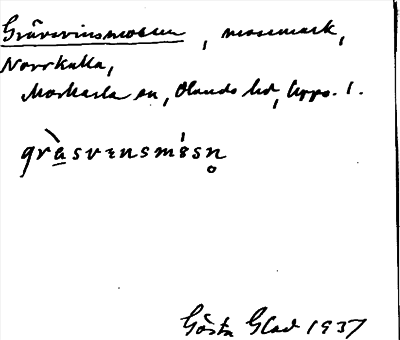 Grävsvinsmossen, mossmark,
Norrkalla,
Morkarla sn, Olands hd, Upps. l.
gràsvɪnsmɵ́sn̥
Gösta Glad 1937